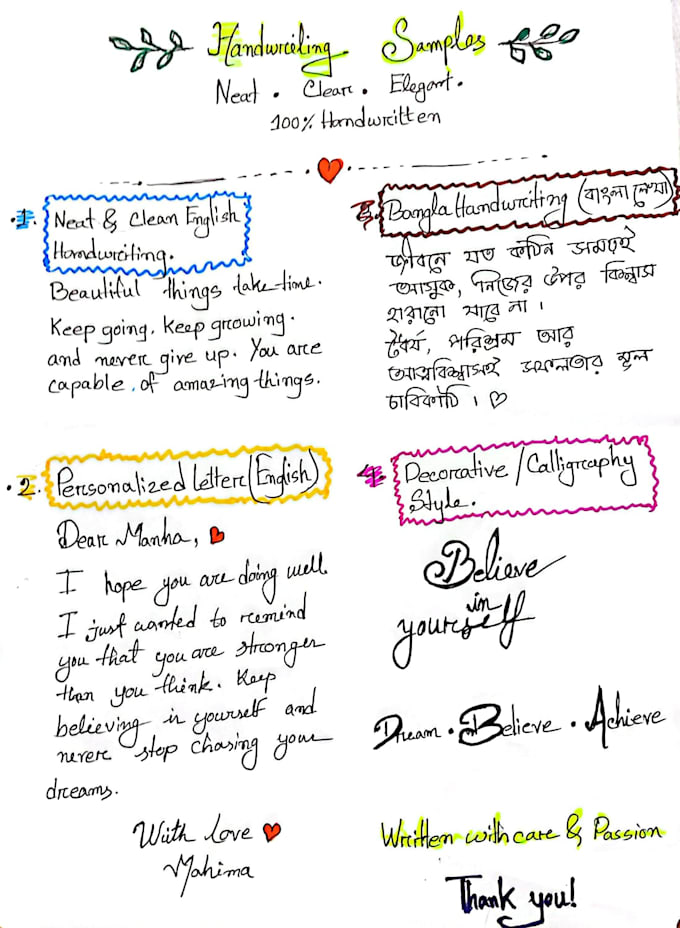 Handwriting Samples
Neat . Clear . Elegant .
100% Handwritten
1. Neat & Clean English
Handwriting.
Beautiful things take time.
Keep going. Keep growing.
and never give up. You are
capable of amazing things.
2. Personalized Letter (English)
Dear Manha,
I hope you are doing well.
I just wanted to remind
you that you are stronger
than you think. Keep
believing in yourself and
never stop chasing your
dreams.
With love
Mahima
3. Bangla Handwriting (বাংলা লেখা)
জীবনে যত কঠিন সময়ই
আসুক, নিজের উপর বিশ্বাস
হারানো যাবে না ।
ধৈর্য, পরিশ্রম আর
আত্মবিশ্বাসই সফলতার মূল
চাবিকাঠি ।
4. Decorative / Calligraphy
Style.
Believe
in
yourself
Dream . Believe . Achieve
Written with care & Passion
Thank you!